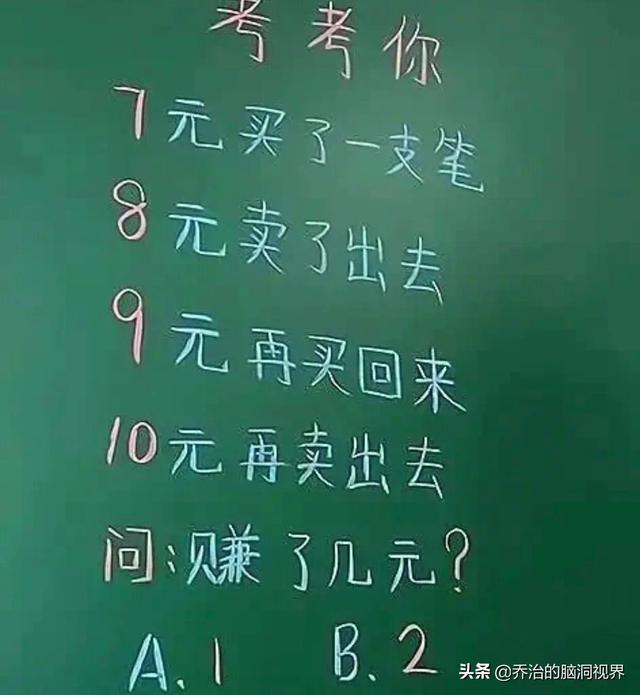 考考你
7元买了一支笔
8元卖了出去
9元再买回来
10元再卖出去
问:赚了几元?
A.1 B.2
头条 @乔治的脑洞视界